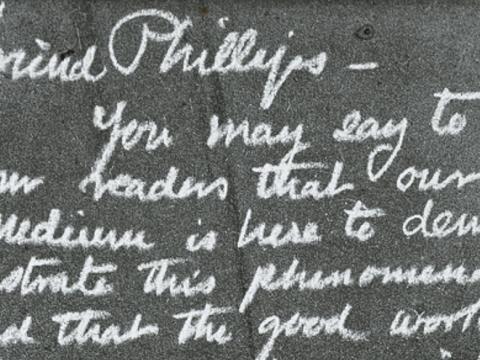 riend Phillips —
You may say to
ur readers that our
Medium is here to dem
strate this phenomen
d that the good work